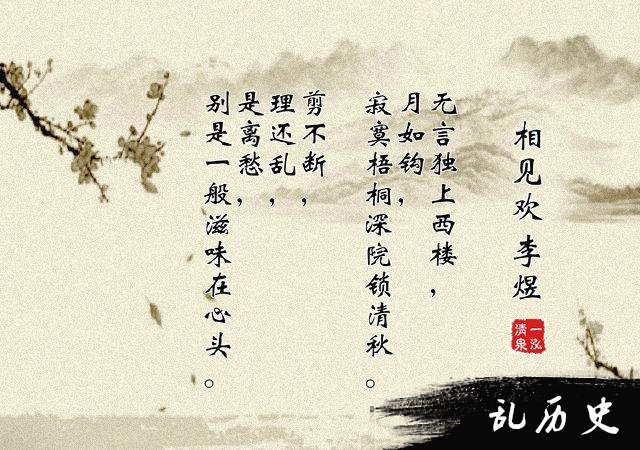 相见欢 李煜
无言独上西楼，
月如钩，
寂寞梧桐深院锁清秋。
剪不断，
理还乱，
是离愁，
别是一般滋味在心头。
一泓清泉
乱历史